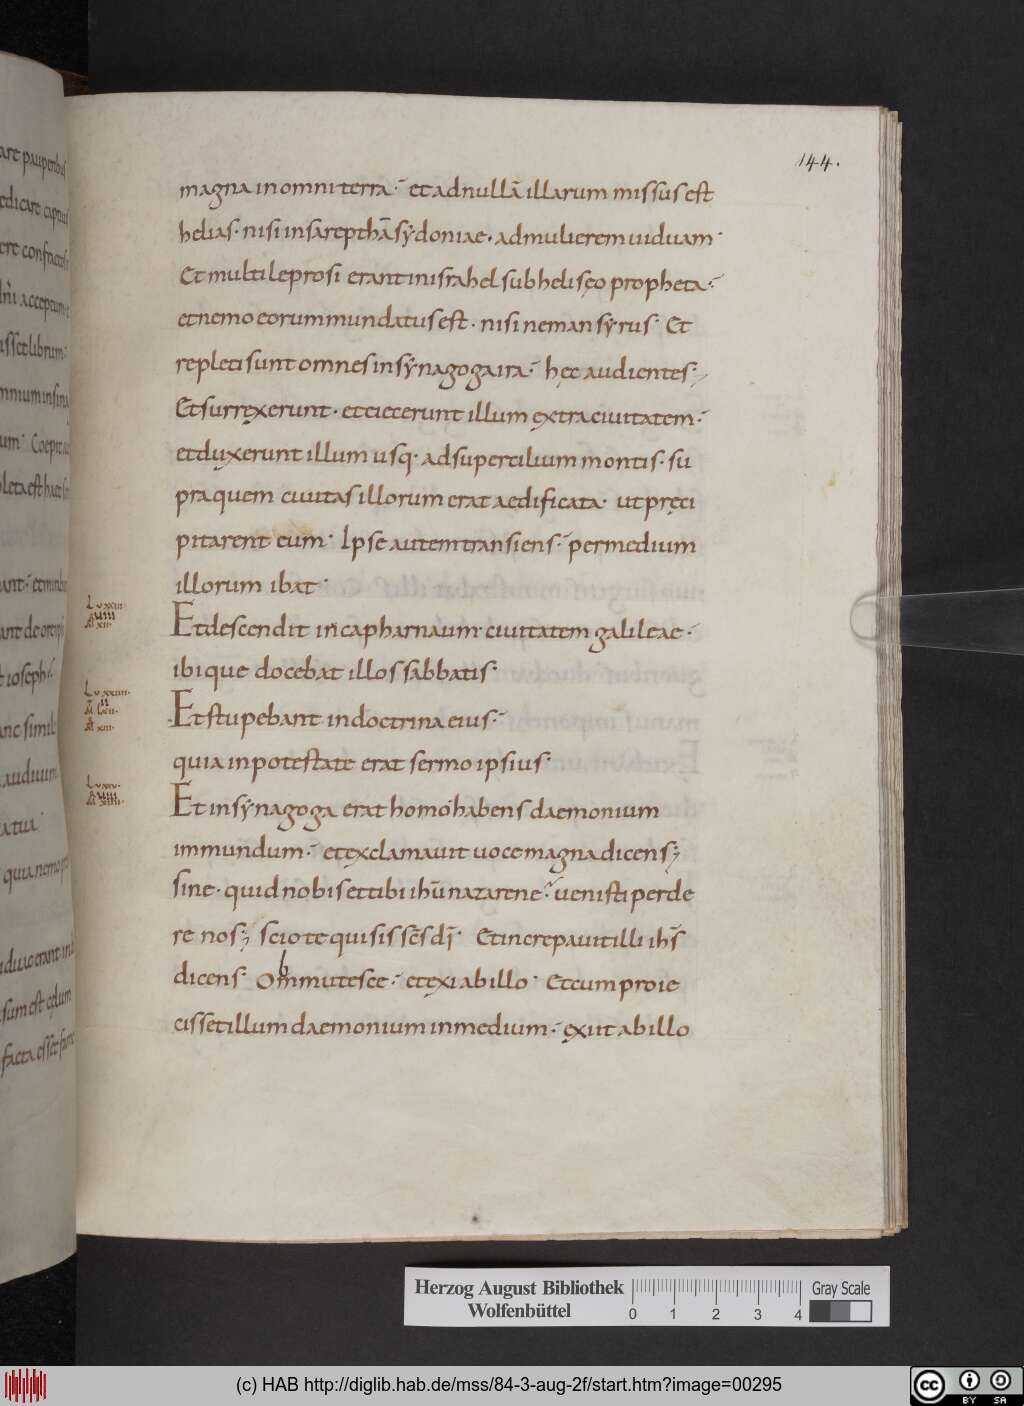 144.
magna in omni terra. et ad nullā illarum missus est
helias. nisi in sarepthā sydoniae. ad mulierem uiduam.
Et multi leprosi erant in israhel sub heliseo propheta.
et nemo eorum mundatus est. nisi neman syrus. Et
repleti sunt omnes in synagoga ira. hęc audientes;
Et surrexerunt. et eiecerunt illum extra ciuitatem.
et duxerunt illum usq. ad supercilium montis. su
pra quem ciuitas illorum erat aedificata. ut pręci
pitarent eum. Ipse autem transiens. per medium
illorum ibat.
Et descendit in capharnaum ciuitatem galileae.
ibique docebat illos sabbatis.
Et stupebant in doctrina eius.
quia in potestate erat sermo ipsius.
Et in synagoga erat homo habens daemonium
immundum. et exclamauit uoce magna dicens;
sine. quid nobis et tibi ihū nazarene. uenisti perde
re nos; scio te qui sis sc̄s dī. Et increpauit illi ihs̄
dicens. Ommutesce. et exi ab illo. Et cum proie
cisset illum daemonium in medium. exiit ab illo
are pauperibus
edicare captiuis
Herzog August Bibliothek
Wolfenbüttel
0 1 2 3 4
Gray Scale
(c) HAB http://diglib.hab.de/mss/84-3-aug-2f/start.htm?image=00295
cc BY SA